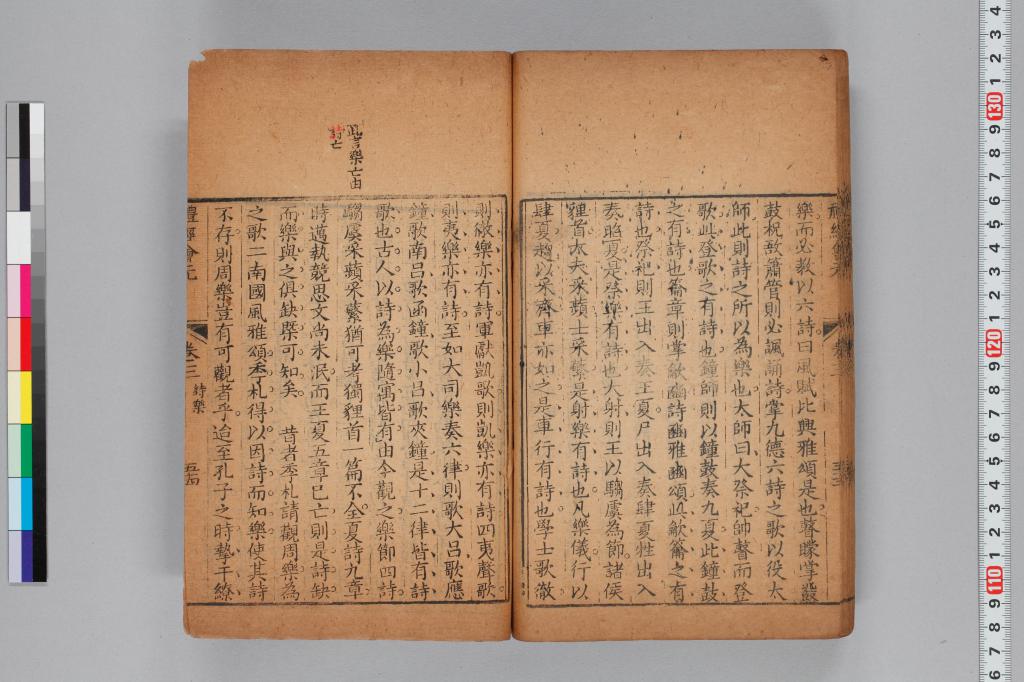 樂而必教以六詩曰風賦比興雅頌是也瞽矇掌鼗
鼓柷敔簫管則必諷誦詩掌九德六詩之歌以役太
師此則詩之所以為樂也太師曰大祭祀帥瞽而登
歌此登歌之有詩也鐘師則以鐘鼓奏九夏此鐘鼓
之有詩也籥章則掌龡豳詩豳雅豳頌此龡籥之有
詩也祭祀則王出入奏王夏尸出入奏肆夏牲出入
奏昭夏是祭樂有詩也大射則王以騶虞為節諸侯
貍首大夫采蘋士采蘩是射樂有詩也凡樂儀行以
肆夏趨以采齊車亦如之是車行有詩也學士歌徹
則徹樂亦有詩軍獻凱歌則凱樂亦有詩四夷聲歌
則夷樂亦有詩至如大司樂奏六律則歌大呂歌應
鐘歌南呂歌函鐘歌小呂歌夾鐘是十二律皆有詩
歌也古人以詩為樂隨寓皆有由今觀之樂節四詩
騶虞采蘋采蘩猶可考獨貍首一篇不全夏詩九章
時邁執競思文尚未泯而王夏五章已亡則是詩缺
而樂與之俱缺槩可知矣 昔者季札請觀周樂為
之歌二南國風雅頌季札得以因詩而知樂使其詩
不存則周樂豈有可觀者乎迨至孔子之時摯干繚
禮經會元 卷三 詩樂 五四
此言樂亡由
詩亡